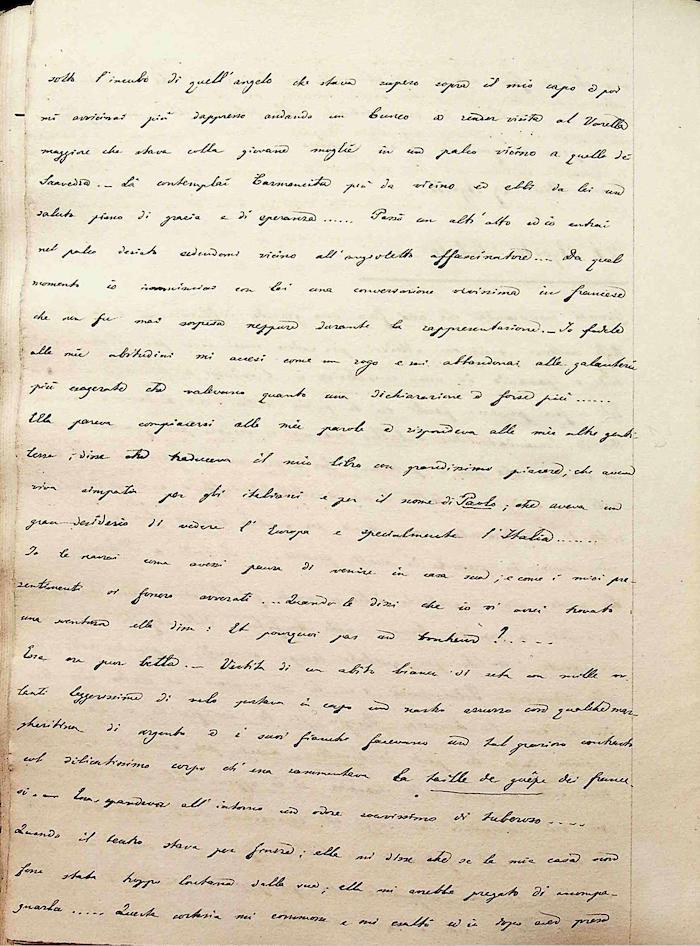 sotto l'incubo di quell'angelo che stava sospeso sopra il mio capo e poi
mi avvicinai più dappresso andando un bunco a render visita al Varella
maggiore che stava colla giovane moglie in un palco vicino a quello dei
Saavedra. – Là contemplai Carmencita più da vicino ed ebbi da lei un
saluto pieno di grazia e di speranza...... Passò un altr'atto ed io entrai
nel palco desiato sedendomi vicino all'angioletto affascinatore.... Da quel
momento io incominciai con lei una conversazione vivissima in francese
che non fu mai sospesa neppure durante la rappresentazione. – Io fedele
alle mie abitudini mi accesi come un rogo e mi abbandonai alle galanterie
più esagerate che valevano quanto una dichiarazione e forse più......
Ella pareva compiacersi alle mie parole e rispondeva alle mie altre genti-
lezze; disse che traduceva il mio libro con grandissimo piacere; che aveva
viva simpatia per gli italiani e per il nome di Paolo; che aveva un
gran desiderio di vedere l'Europa e specialmente l'Italia.......
Io le narrai come avessi paura di venire in casa sua; e come i miei pre-
sentimenti si fossero avverati... Quando le dissi che io vi avrei trovato
una sventura ella disse: Et pourquoi pas un bonheur?.....
Essa era pur bella. – Vestita di un abito bianco di seta con mille vo-
lanti leggerissimi di velo portava in capo un nastro azzurro con qualche mar-
gheritina di argento e i suoi fianchi facevano un tal grazioso contrasto
col dilicatissimo corpo ch'essa rammentava la taille de guêpe dei france-
si. – Essa spandeva all'intorno un odore soavissimo di tuberose.....
Quando il teatro stava per finire; ella mi disse che se la mia casa non
fosse stata troppo lontana dalla sua; ella mi avrebbe pregato di accompa-
gnarla..... Questa cortesia mi commosse e mi esaltò ed io dopo aver preso